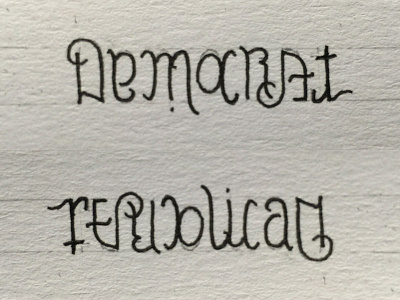 Democrat
republican